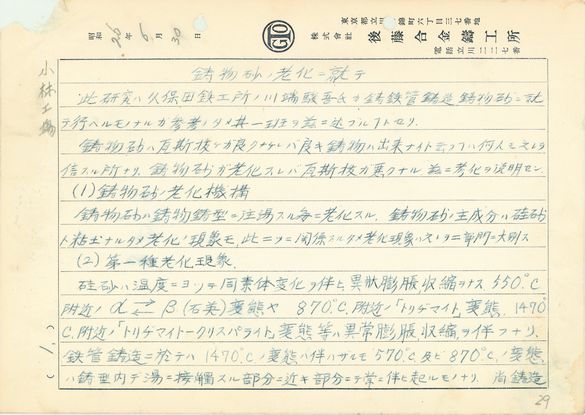 東京都立川市錦町六丁目三七番地
株式會社 後藤合金鑄工所
電話立川二二二七番
昭和26年6月30日
小林工場
鋳物砂ノ老化ニ就テ
此研究ハ久保田鉄工所ノ川端駿吾氏ガ鋳鉄管鋳造鋳物砂ニ就
テ行ヘルモノナルガ参考ノタメ其一班ヲ茲ニ述ブルコトセリ.
鋳物砂ハ瓦斯抜ケガ良クナケレバ良キ鋳物ハ出来ナイト云フコトハ何人モ
信スル所ナリ. 鋳物砂ガ老化スレバ瓦斯抜ガ悪クナル 茲ニ老化ヲ説明セン.
(1) 鋳物砂ノ老化機構
鋳物砂ハ鋳物鋳型ニ注湯スル毎ニ老化スル. 鋳物砂ノ主成分ハ硅砂
ト粘土ナルタメ老化ノ現象モ, 此ニツニ関係スルタメ老化現象ハ 二部門ニ大別ス
(2) 第一種老化現象.
硅砂ハ温度ニヨッテ同素体変化ヲ伴ヒ異状膨脹収縮ヲナス 550°C
附近ノ α ⇄ β (石英)変態ヤ 870°C. 附近ノ「トリヂマイト」変態. 1470°
C. 附近ノ「トリヂマイトークリスバライト」変態等ハ異常膨脹収縮ヲ伴フナリ.
鉄管鋳造ニ於テハ 1470°Cノ変態ハ伴ハザルモ 570°C. 及ビ 870°C.ノ変態
ハ鋳型内デ湯ニ接觸スル部分ニ近キ部分デ常ニ伴ヒ起ルモノナリ. 尚鋳造
(1.)
29